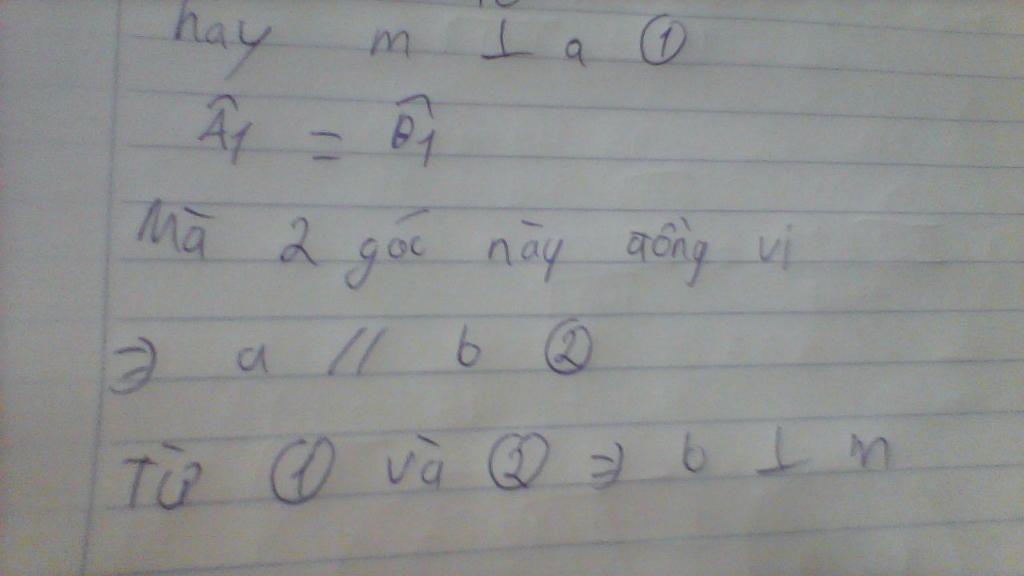 hay m ⊥ a ①
Â1 = B̂1
Mà 2 góc này đồng vị
⇒ a // b ②
Từ ① và ② ⇒ b ⊥ m